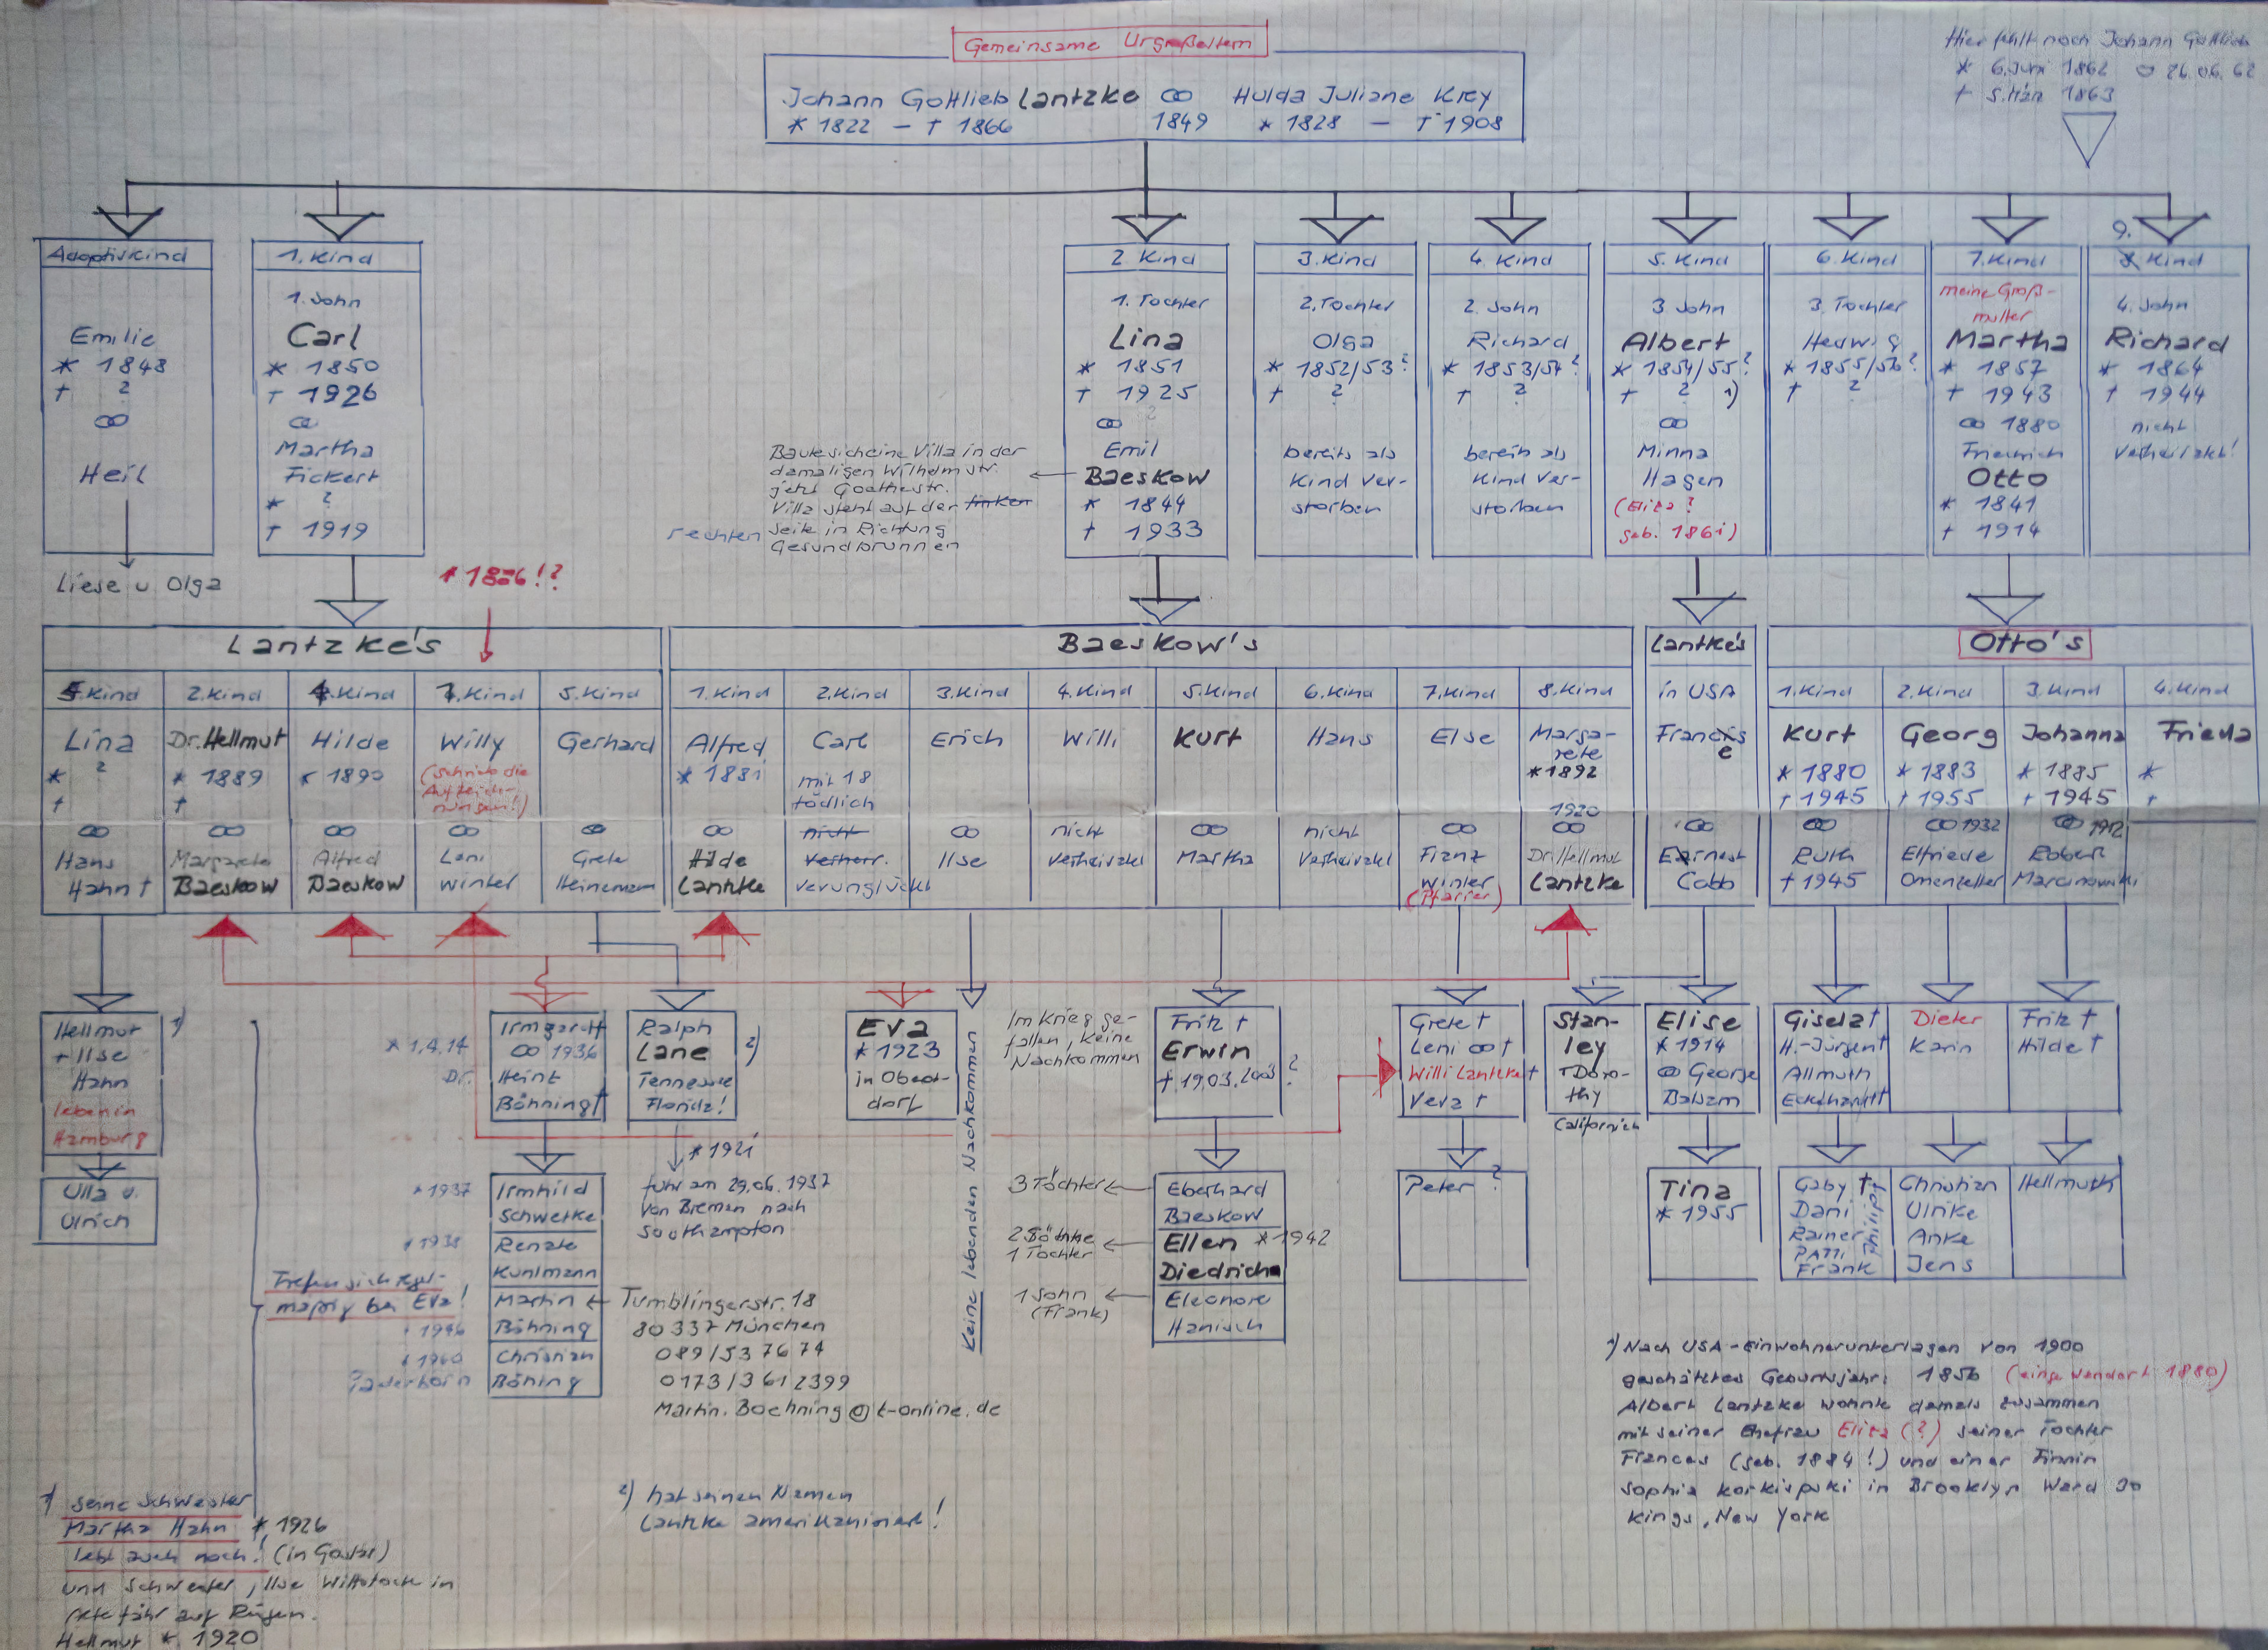 Gemeinsame Urgroßeltern
Johann Gottlieb Lantzke ∞ Hulda Juliane Krey
* 1822 – † 1866 1849 * 1828 – † 1908
Hier fehlt noch Johann Gottlieb
* 6. Juni 1862 26.06.62
† 5. März 1863
Adoptivkind
Emilie
* 1848
† ?
∞
Heil
Liese u Olga
1. Kind
1. Sohn
Carl
* 1850
† 1926
∞
Martha
Fickert
* ?
† 1919
2. Kind
1. Tochter
Lina
* 1851
† 1925
∞ ?
Emil
Baeskow
* 1844
† 1933
Baute sich eine Villa in der
damaligen Wilhelmstr.
jetzt Goethestr.
Villa steht auf der linken
rechten Seite in Richtung
Gesundbrunnen
3. Kind
2. Tochter
Olga
* 1852/53?
† ?
bereits als
Kind ver-
storben
4. Kind
2. Sohn
Richard
* 1853/54?
† ?
bereits als
Kind ver-
storben
5. Kind
3 Sohn
Albert
* 1854/55?
† ? 1)
∞
Minna
Hagen
(Eliza ?
geb. 1861)
6. Kind
3. Tochter
Hedwig
* 1855/56?
† ?
7. Kind
meine Groß-
mutter
Martha
* 1857
† 1943
∞ 1880
Friedrich
Otto
* 1841
† 1914
9.
8. Kind
4. Sohn
Richard
* 1864
† 1944
nicht
verheiratet!
* 1886!?
Lantzke's
5. Kind
Lina
* ?
†
∞
Hans
Hahn †
2. Kind
Dr. Hellmut
* 1889
†
∞
Margarete
Baeskow
4. Kind
Hilde
* 1890
∞
Alfred
Baeskow
1. Kind
Willy
(Schrieb die
Aufzeich-
nungen!)
∞
Leni
Winter
5. Kind
Gerhard
∞
Grete
Heinemann
Baeskow's
1. Kind
Alfred
* 1881
∞
Hilde
Lantzke
2. Kind
Carl
mit 18
tödlich
nicht
verheir.
verunglückt
3. Kind
Erich
∞
Ilse
4. Kind
Willi
nicht
verheiratet
5. Kind
Kurt
∞
Martha
6. Kind
Hans
nicht
verheiratet
7. Kind
Else
∞
Franz
Winter
(Pfarrer)
8. Kind
Marga-
rete
* 1892
1920
∞
Dr. Hellmut
Lantzke
Lantke's
in USA
Francis
e
∞
Earnest
Cobb
Otto's
1. Kind
Kurt
* 1880
† 1945
∞
Ruth
† 1945
2. Kind
Georg
* 1883
† 1955
∞ 1932
Elfriede
Omenzetter
3. Kind
Johanna
* 1885
† 1945
∞ 1912
Robert
Marcinowski
4. Kind
Frieda
*
†
Hellmut 1)
+ Ilse
Hahn
leben in
Hamburg
Ulla u.
Ulrich
* 1.4.14
Dr.
Irmgard †
∞ 1936
Heinz
Böhning †
Ralph 2)
Lane
Tennessee
Florida!
Eva
* 1923
in Oberst-
dorf
Keine lebenden Nachkommen
Im Krieg ge-
fallen, keine
Nachkommen
Fritz †
Erwin
† 19.03.2003 ?
Grete †
Leni ∞ †
Willi Lantzke †
Vera †
Stan-
ley
+ Doro-
thy
Californien
Elise
* 1914
∞ George
Balsam
Gisela †
H.-Jürgen †
Allmuth
Eckehardt †
Dieter
Karin
Fritz †
Hilde †
* 1937 Irmhild
Schwetke
* 1938 Renate
Kuhlmann
Martin ←
* 1946 Böhning
* 1960 Christian
Paderborn Böning
* 1921
fuhr am 29.06.1937
von Bremen nach
Southampton
Tumblingerstr. 18
80337 München
089/537674
0173/3612399
Martin.Boehning@t-online.de
3 Töchter ← Eberhard
Baeskow
2 Söhne
1 Tochter ← Ellen * 1942
Diedrich
1 Sohn
(Frank) ← Eleonore
Hanisch
Peter ?
Tina
* 1955
Gaby †
Dani
Rainer
Patti
Frank
Philipp
Christian
Ulrike
Anke
Jens
Hellmuth
Treffen sich regel-
mäßig bei Eva!
1) Nach USA-Einwohnerunterlagen von 1900
geschätztes Geburtsjahr: 1856 (eingewandert 1880)
Albert Lantzke wohnte damals zusammen
mit seiner Ehefrau Eliza (?) seiner Tochter
Frances (geb. 1884!) und einer Finnin
Sophia Korkispski in Brooklyn Ward 30
Kings, New York
1) seine Schwester
Martha Hahn * 1926
lebt auch noch! (in Goslar)
und Schwester, Ilse Wittstock in
Altefähr auf Rügen.
Hellmut * 1920
2) hat seinen Namen
Lantzke amerikanisiert!